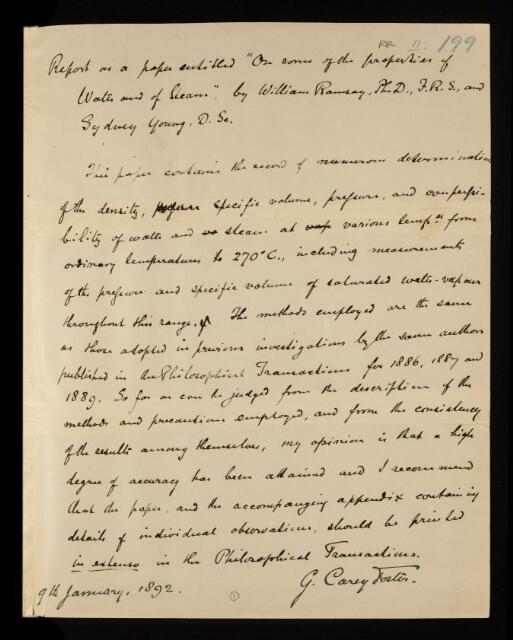 RR 11. 199
Report on a paper entitled "On some of the properties of
Water and of Steam", by William Ramsay, Ph.D., F.R.S., and
Sydney Young, D.Sc.
This paper contains the record of numerous determinations
of the density, specific volume, pressure, and compressi-
bility of water and steam at various temp.s from
ordinary temperatures to 270°C., including measurements
of the pressure and specific volume of saturated water-vapour
throughout this range. The methods employed are the same
as those adopted in previous investigations by the same authors
published in the Philosophical Transactions for 1886, 1887 and
1889. So far as can be judged from the description of the
methods and precautions employed, and from the consistency
of the results among themselves, my opinion is that a high
degree of accuracy has been attained and I recommend
that the paper, and the accompanying appendix containing
details of individual observations, should be printed
in extenso in the Philosophical Transactions.
G. Carey Foster.
9th January, 1892.
1